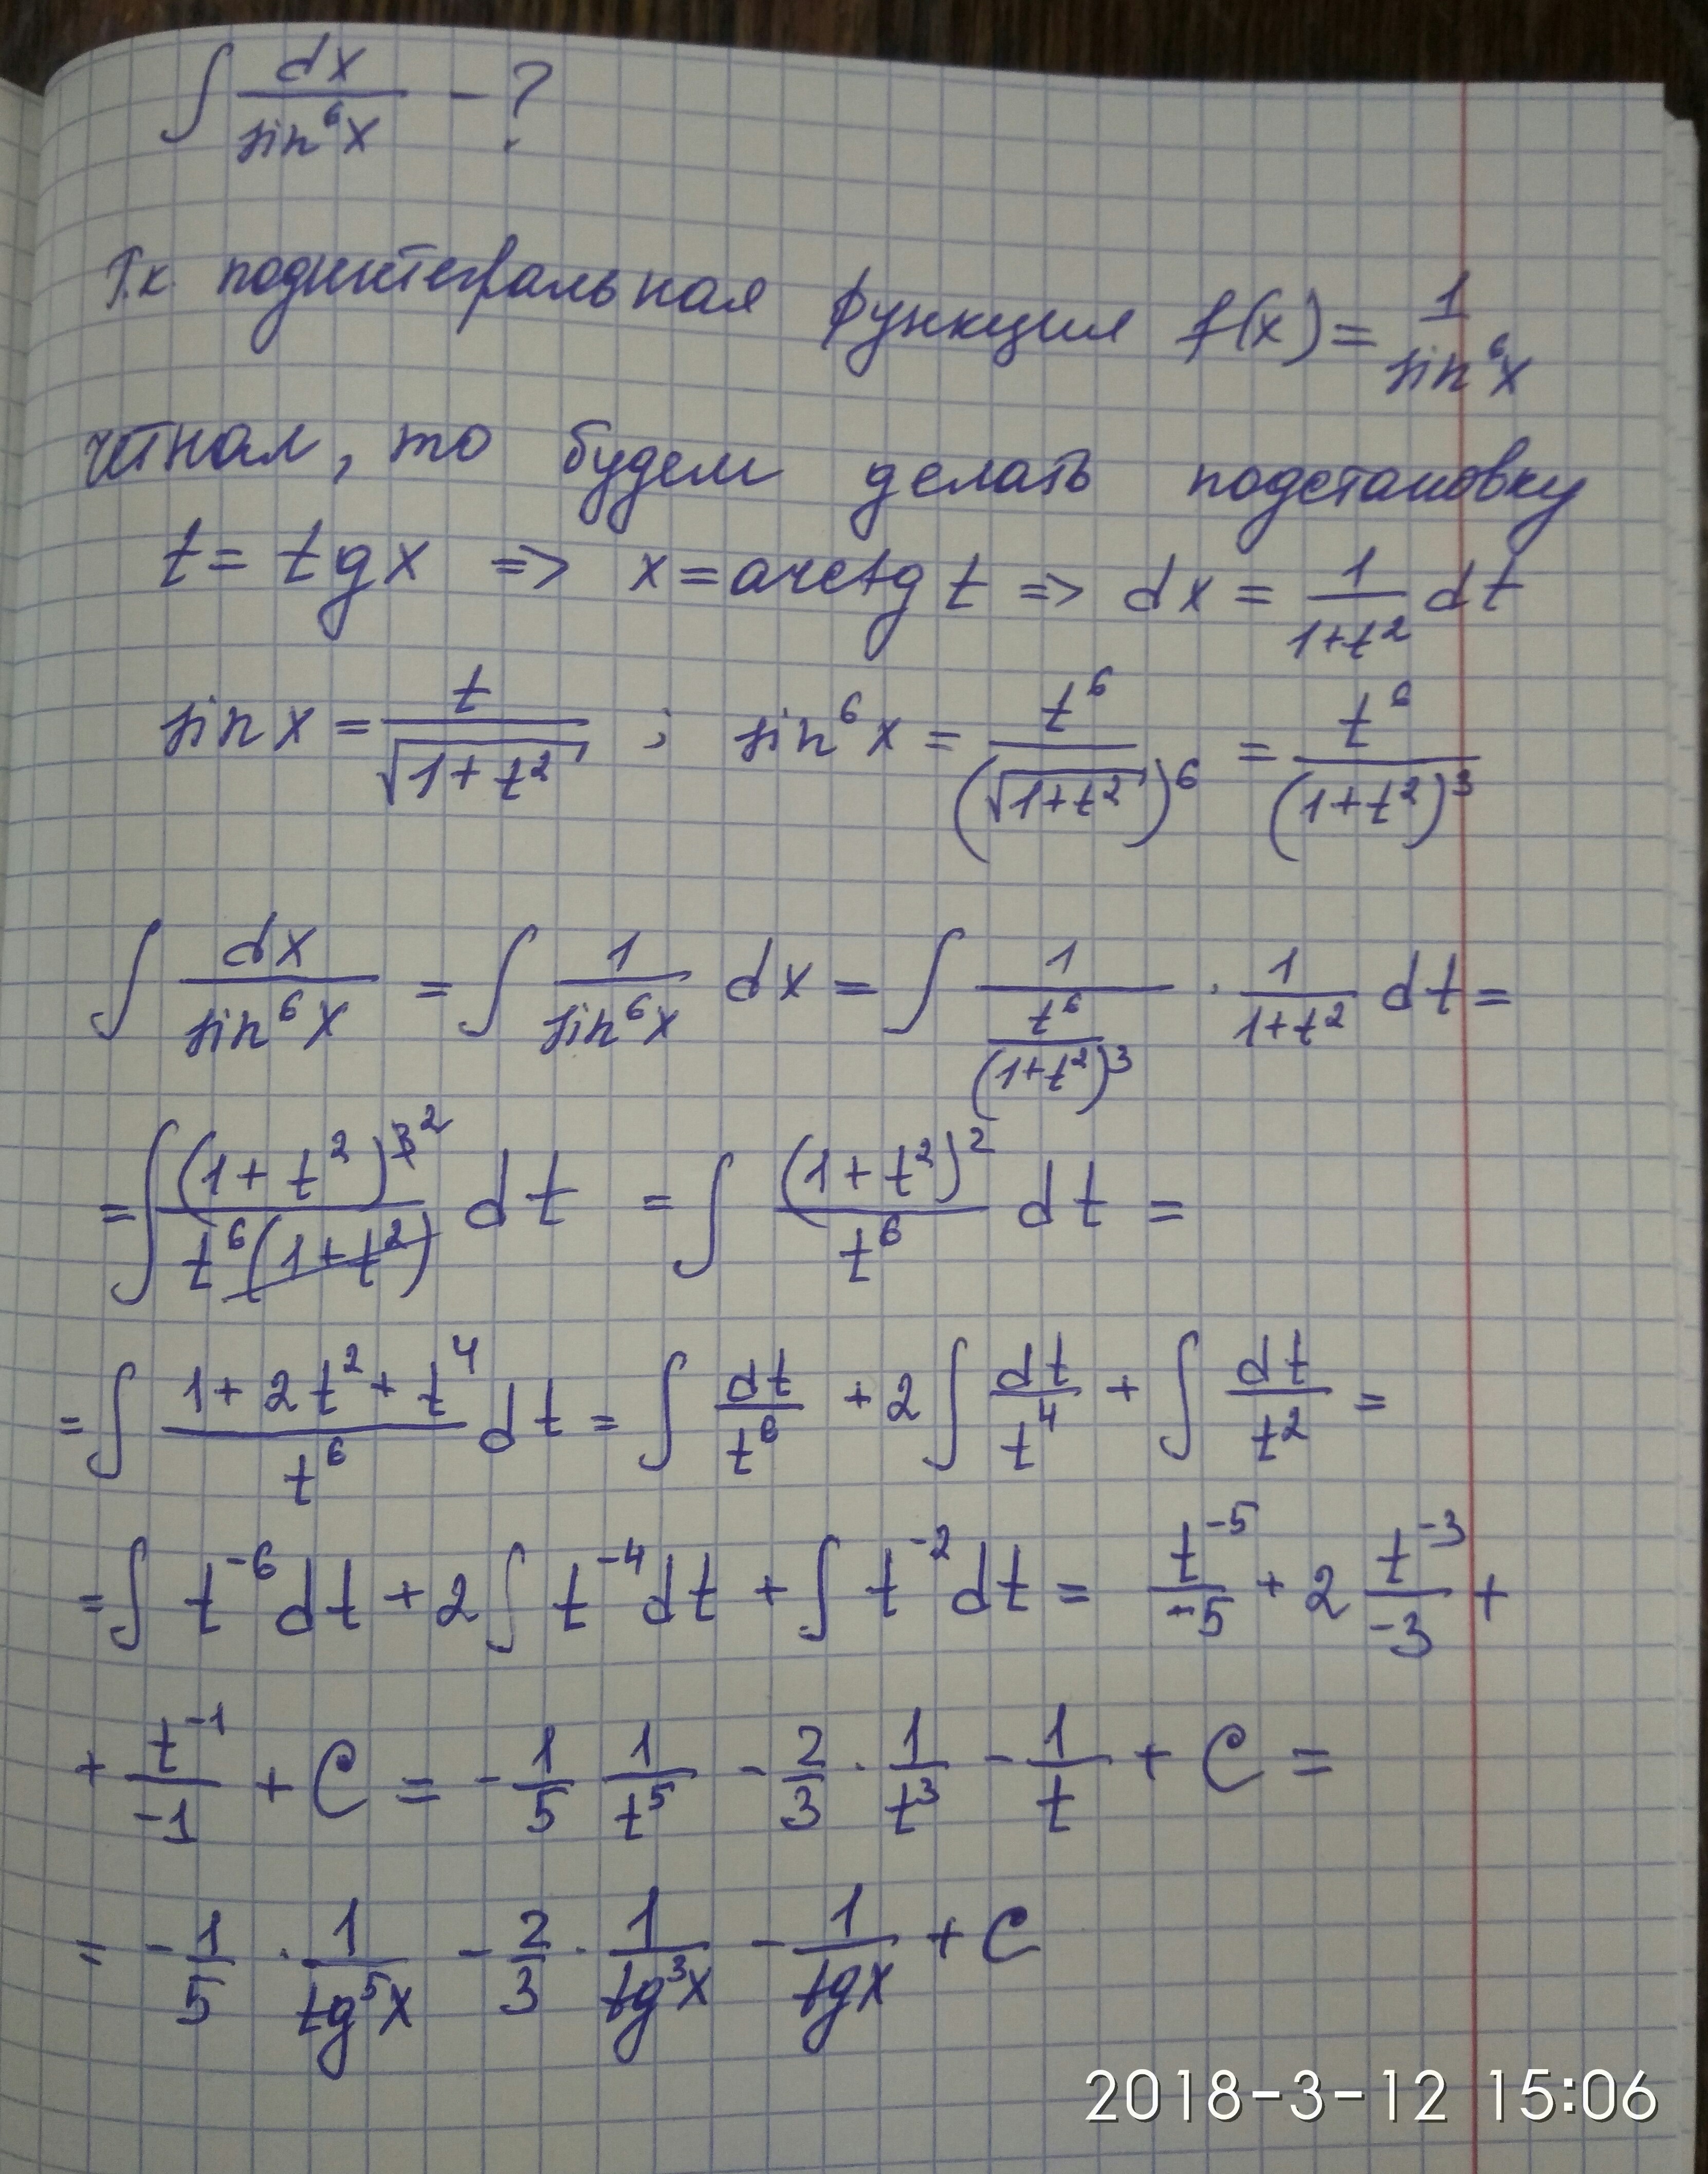 ∫ dx/sin⁶x - ?
Т.к. подинтегральная функция f(x) = 1/sin⁶x
чётная, то будем делать подстановку
t = tg x => x = arctg t => dx = 1/(1+t²) dt
sin x = t/√(1+t²) ; sin⁶x = t⁶/(√(1+t²))⁶ = t⁶/(1+t²)³
∫ dx/sin⁶x = ∫ 1/sin⁶x dx = ∫ 1/(t⁶/(1+t²)³) · 1/(1+t²) dt =
= ∫ (1+t²)³ ²/(t⁶(1+t²)) dt = ∫ (1+t²)²/t⁶ dt =
= ∫ (1+2t²+t⁴)/t⁶ dt = ∫ dt/t⁶ + 2∫ dt/t⁴ + ∫ dt/t² =
= ∫ t⁻⁶dt + 2∫ t⁻⁴dt + ∫ t⁻²dt = t⁻⁵/-5 + 2 t⁻³/-3 +
+ t⁻¹/-1 + C = - 1/5 1/t⁵ - 2/3 · 1/t³ - 1/t + C =
= - 1/5 · 1/tg⁵x - 2/3 · 1/tg³x - 1/tgx + C
2018-3-12 15:06